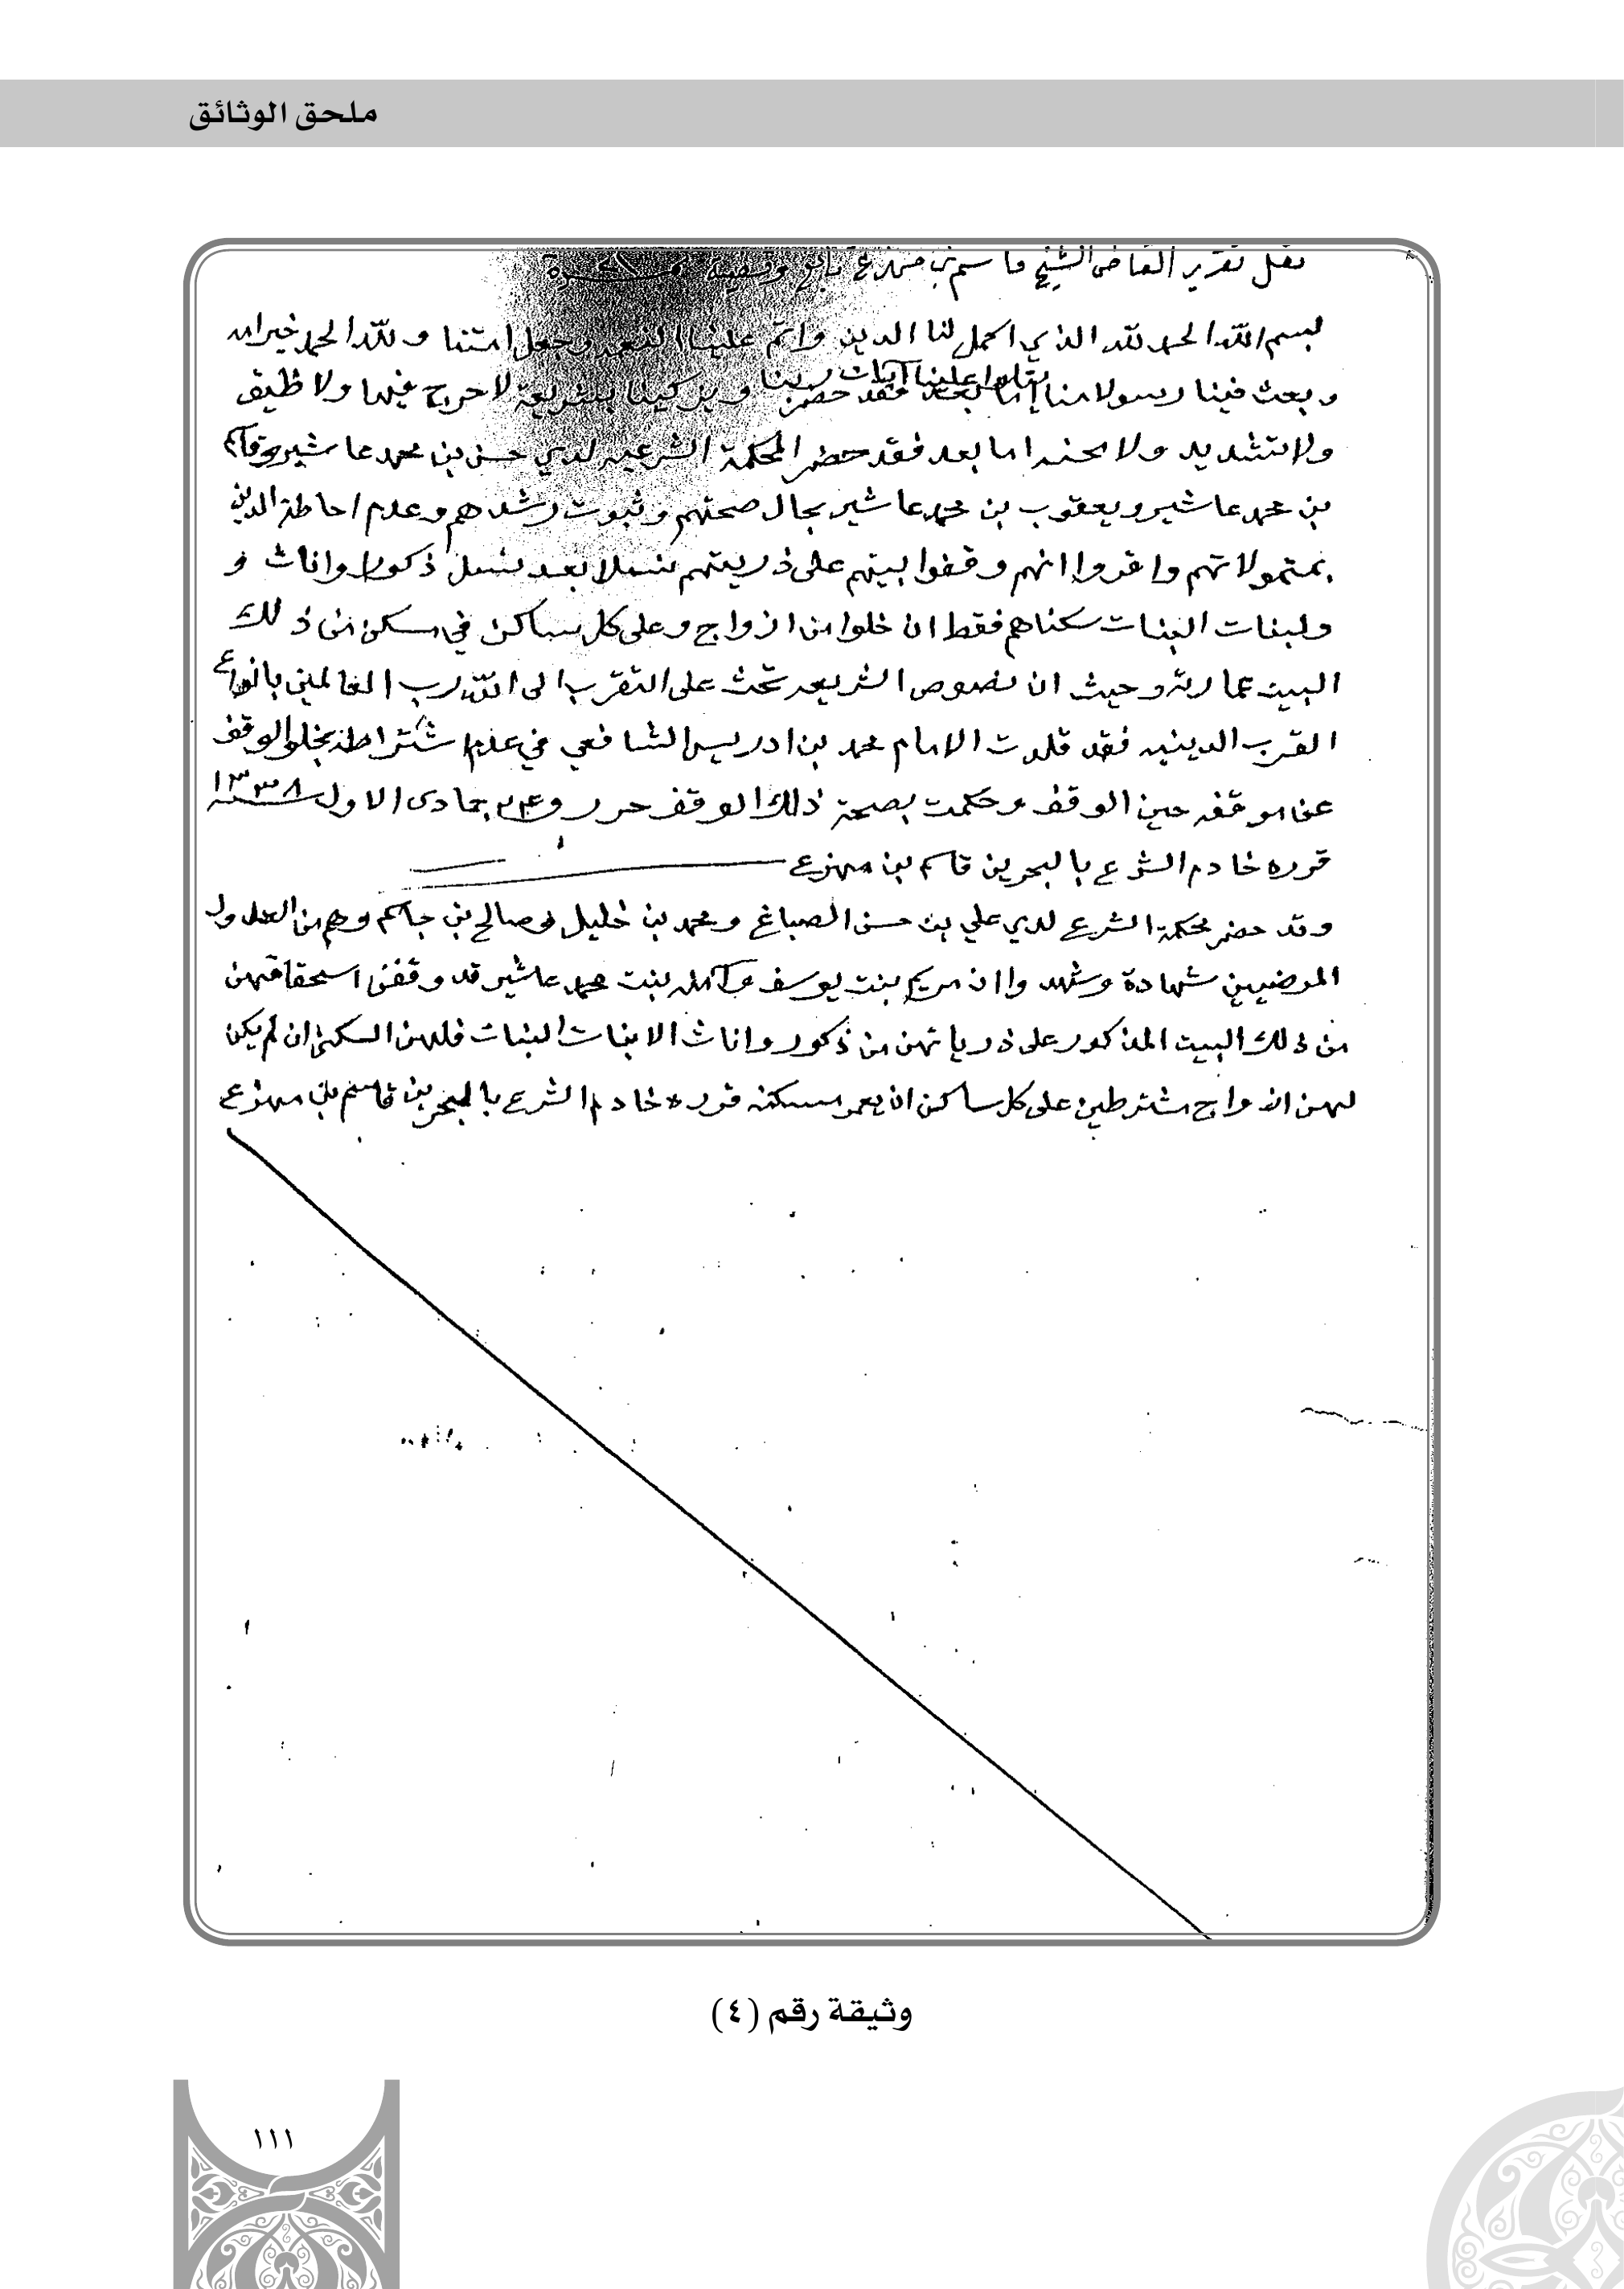 ملحق الوثائق
نقل تقرير القاضي الشيخ قاسم بن مهزع
بسم الله الحمد لله الذي اكمل لنا الدين واتم علينا النعمه وجعل امتنا ولله الحمد خير امه
وبعث فينا رسولا منا يتلوا علينا آيات ربنا ويزكينا بشريعة لا حرج فيها ولا ظيق
ولا تشديد ولا اما بعد فقد حضر المحكمة الشرعيه لدي حسن بن محمد عاشير
بن محمد عاشير ويعقوب بن محمد عاشير بحال صحتهم وثبوت رشدهم وعدم احاطة الدين
بمتمولاتهم واقروا انهم وقفوا بيتهم على ذريتهم نسلا بعد نسل ذكورا واناث و
ولبنات البنات سكناهم فقط ان خلوا من ازواج وعلى كل ساكن في مسكن من ذلك
البيت عمارته وحيث ان نصوص الشريعه تحث على التقرب الى الله رب العالمين بانواع
القرب الدينيه فقد قلدت الامام محمد بن ادريس الشافعي في عدم شتراطه بخلو الوقف
عن موقفه حين الوقف وحكمت بصحة ذلك الوقف حرر جمادى الاول سنة ١٣٣٨
قرره خادم الشرع بالبحرين قاسم بن مهزع
وقد حضر محكمة الشرع لدي علي بن حسن الصباغ ومحمد بن خليل وصالح بن جاسم وهم من العدول
المرضيين شهادة وشهدوا ان مريم بنت يوسف وآمنه بنت محمد عاشير قد وقفن استحقاقهن
من ذلك البيت المذكور على ذرياتهن من ذكور واناث الا بنات البنات فلهن السكنى ان لم يكن
لهن ازواج مشترطين على كل ساكن ان يعمر مسكنه قرره خادم الشرع بالبحرين قاسم بن مهزع
وثيقة رقم (٤)
١١١